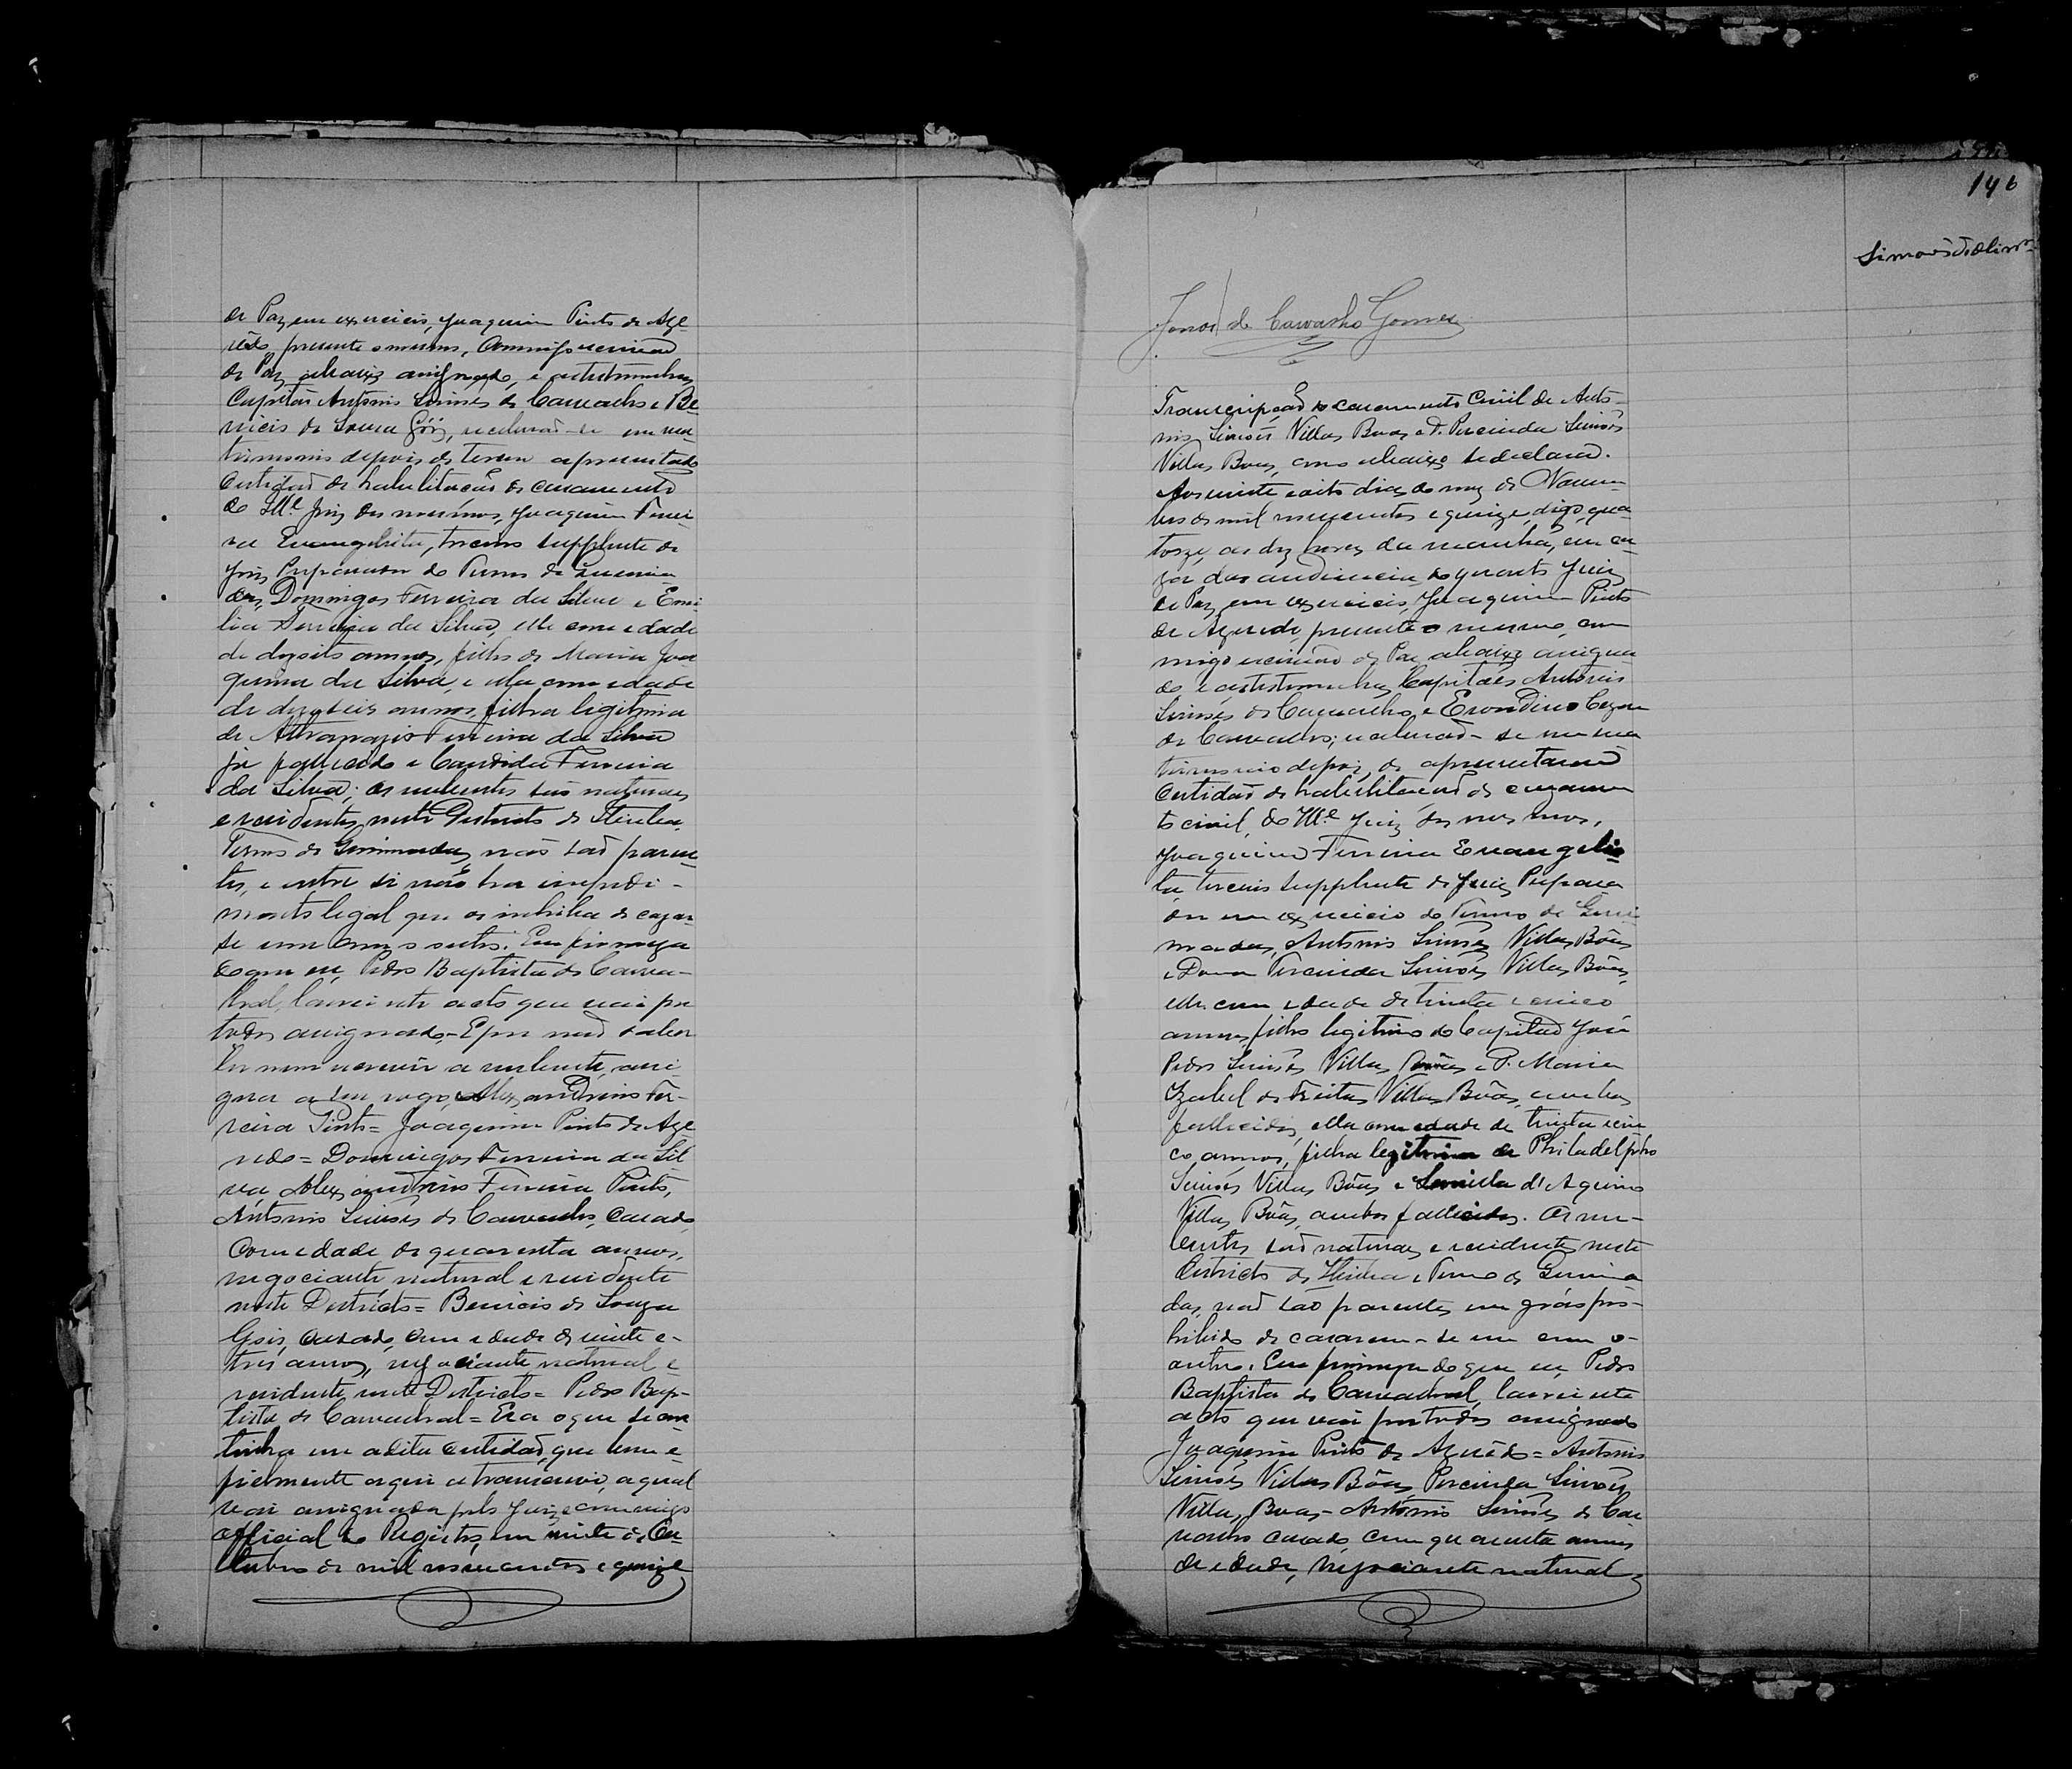 de Paz em exercicio, Joaquim Pinto de Aze-
vêdo, presente o mesmo, Commigo escrivaõ
de Paz abaixo assignado, e as testemunhas
Capitão Antonio Simões de Carvalho e Be-
nicio de Souza Góis, receberaõ-se em ma-
trimonio depois de terem apresentado
Certidaõ de habilitacão de casamento
do Mel. Juiz dos mesmos, Joaquim Ferrei-
ra Evangelista, terceiro supplente do
Juiz Preparador do Termo de
Domingos Ferreira da Silva e Emi-
lia Ferreira da Silva, elle com edade
de dezoito annos, filho de Maria Joa
quina da Silva, e ella com edade
de dezeseis annos, filha legitima
de Ferreira da Silva
já fallecido e Candida Ferreira
da Silva; os nubentes são naturaes
e residentes neste Districto de
Termo de não saõ paren-
tes, e entre si não ha impedi-
mento legal que os inhiba de cazar-
se um com o outro. Em firmeza
do que eu, Pedro Baptista de
lavrei este acto que vai por
todos assignado. E por naõ saber
ler nem escrever a nubente, assi
gna a seu rogo, Alexandrino Fer-
reira Pinto = Joaquim Pinto de Aze
vedo = Domingos Ferreira da Sil
va, Alexandrino Ferreira Pinto,
Antonio Simões de Carvalho, casado,
Com edade de quarenta annos,
negociante natural e residente
neste Districto = Benicio de Souza
Gois, casado, com edade de vinte e-
tres annos, negociante natural e
residente neste Districto = Pedro Bap-
tista de = Era o que se con
tinha em a dita certidaõ, que bem e
fielmente aqui a transcrevi, a qual
vai assignada pelo Juiz e commigo
official do Registro, em vinte de Ou-
tubro de mil novecentos e quinze
146
Simões
de Carvalho Gomes
Transcripçaõ do casamento Civil de Anto-
nio Simões Villas Boas e D. Percinda Simões
Villas Boas, como abaixo se declara.
Aos vinte e oito dias do mez de Novem-
bro de mil novecentos e quinze, digo, qua-
torze, as dez horas da manhã, em ca-
za das audiencias do quarto Juiz
de Paz em exercicio, Joaquim Pinto
de Azevedo, presente o mesmo, com
migo escrivaõ de Paz abaixo assigna
do e as testemunhas Capitães Antonio
Simões de Carvalho e Erondino Cezar
de Carvalho; receberaõ-se em ma
trimonio depois de apresentarem
Certidaõ de habilitacaõ de cazamen
to civil, do Mel. Juiz dos mesmos,
Joaquim Ferreira Evangelis
ta, terceiro supplente do Juiz Prepara
dor em exercicio do Termo de
Antonio Simões Villas Bôas
e Dona Percinda Simões Villas Bôas,
elle com edade de trinta e cinco
annos, filho legitimo do Capitaõ José
Pedro Simões Villas Bôas e D. Maria
Izabel de Freitas Villas Bôas, ambos
fallecidos, ella com edade de trinta e cin
co annos, filha legitima de Philadelpho
Simões Villas Bôas e d'Aquino
Villas Bôas, ambos fallecidos. Os nu-
bentes saõ naturaes e residentes neste
Districto de e Termo de
naõ são parentes em gráo pro-
hibido de casarem-se um com o-
outro. Em firmeza do que eu, Pedro
Baptista de lavrei este
acto que vai por todos assignado
Joaquim Pinto de Azevêdo = Antonio
Simões Villas Bôas, Percinda Simões
Villas Boas - Antonio Simões de Car
valho casado, com quarenta annos
de edade, negociante natural